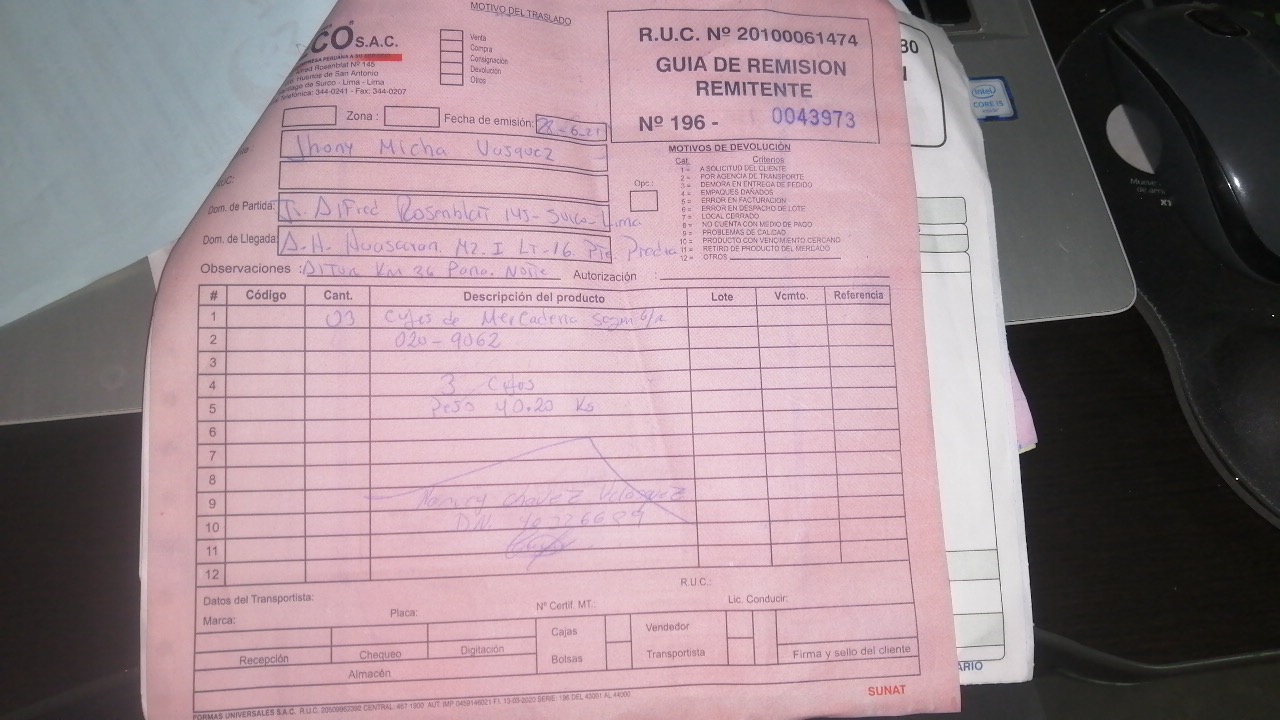 MOTIVO DEL TRASLADO
CO S.A.C.
EMPRESA PERUANA A SU
fred Rosenblat Nº 145
Huertos de San Antonio
tiago de Surco - Lima - Lima
Telefónica: 344-0241 - Fax: 344-0207
Venta
Compra
Consignación
Devolución
Otros
R.U.C. Nº 20100061474
GUIA DE REMISION
REMITENTE
Nº 196 - 0043973
Zona :
Fecha de emisión: 28-6-21
Jhony Micha Vasquez
Dom. de Partida: Alfred Rosenblat 145- Surco-Lima
Dom. de Llegada: A.H. Huascaran. Mz. I LT-16. Pte. Piedra
Observaciones : Altur Km 36 Pana. Norte
Autorización :
MOTIVOS DE DEVOLUCIÓN
Cat. Criterios
1 = A SOLICITUD DEL CLIENTE
2 = POR AGENCIA DE TRANSPORTE
3 = DEMORA EN ENTREGA DE PEDIDO
4 = EMPAQUES DAÑADOS
5 = ERROR EN FACTURACION
6 = ERROR EN DESPACHO DE LOTE
7 = LOCAL CERRADO
8 = NO CUENTA CON MEDIO DE PAGO
9 = PROBLEMAS DE CALIDAD
10 = PRODUCTO CON VENCIMIENTO CERCANO
11 = RETIRO DE PRODUCTO DEL MERCADO
12 = OTROS
Opc.:
# Código Cant. Descripción del producto Lote Vcmto. Referencia
1 03 Cajas de Mercaderia Segun G/R
2 020-9062
3
4 3 Cajas
5 Peso 40.20 Ks
6
7
8
9 Chavez Velasquez
10
11
12
R.U.C.:
Datos del Transportista:
Marca:
Placa:
Nº Certif. MT.:
Lic. Conducir:
Recepción
Chequeo
Digitación
Cajas
Bolsas
Vendedor
Transportista
Firma y sello del cliente
Almacén
FORMAS UNIVERSALES S.A.C. R.U.C. 20509962392 CENTRAL: 467-1900 AUT. IMP 0459146021 F.I. 13-03-2020 SERIE: 196 DEL 43001 AL 44000
SUNAT
intel
CORE i5
80
ARIO